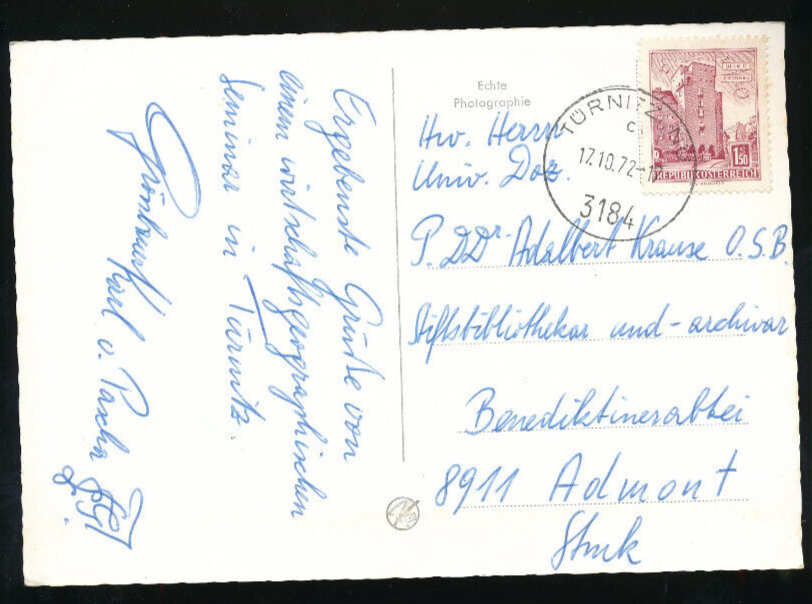 Ergebenste Grüße von
einem wirtschaftsgeographischen
Seminar in Türnitz.
Karl v.
Echte
Photographie
TÜRNITZ, NÖ
c
17.10.72-17
3184
1.50
REPUBLIK ÖSTERREICH
Hw. Herrn
Univ. Doz.
P. DDr. Adalbert Krause O.S.B.
Stiftsbibliothekar und -archivar
Benediktinerabtei
8911 Admont
Stmk